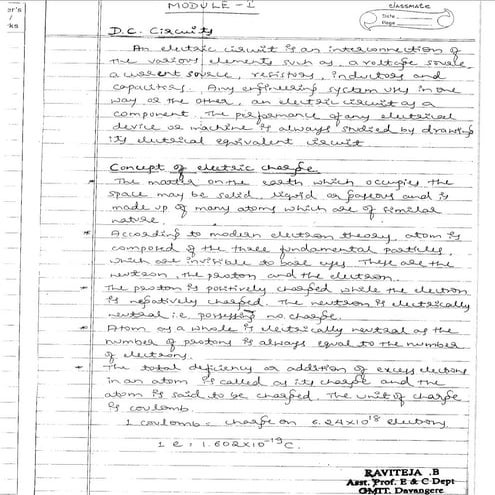 er's
/
ks
MODULE - I
CLASSMATE
Date :
Page :
D.C. Circuits
An electric circuit is an interconnection of
the various elements such as, a voltage source
a current source, resistors, inductors and
capacitors. Any engineering system uses in one
way or the other, an electric circuit as a
component. The performance of any electrical
device or machine is always studied by drawing
its electrical equivalent circuit
Concept of electric charge
* The matter on the earth which occupies the
space may be solid, liquid or gaseous and is
made up of many atoms which are of similar
nature.
* According to modern electron theory, atom is
composed of the three fundamental particles,
which are invisible to bare eyes. These are the
neutron, the proton and the electron.
* The proton is positively charged while the electron
is negatively charged. The neutron is electrically
neutral i.e. possessing no charge.
* Atom as a whole is electrically neutral as the
number of protons is always equal to the number
of electrons.
* The total deficiency or addition of excess electrons
in an atom is called as its charge and the
atom is said to be charged. The unit of charge
is coulomb.
1 coulomb = charge on 6.24x10¹⁸ electrons
1 e = 1.602x10⁻¹⁹ C.
RAVITEJA .B
Asst. Prof. E & C Dept
GMIT. Davangere